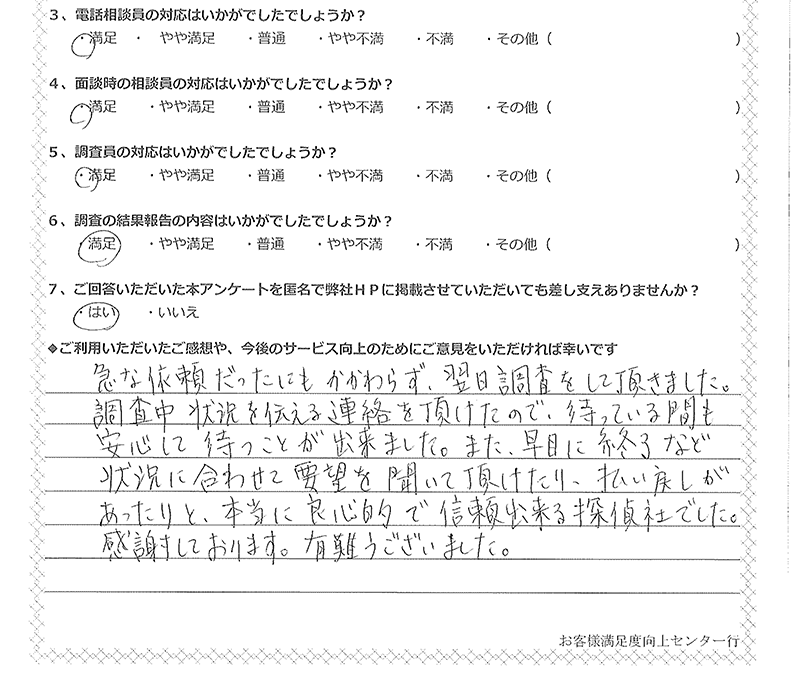 3、電話相談員の対応はいかがでしたでしょうか？
・満足 ・ やや満足 ・普通 ・やや不満 ・不満 ・その他（ ）
4、面談時の相談員の対応はいかがでしたでしょうか？
・満足 ・やや満足 ・普通 ・やや不満 ・不満 ・その他（ ）
5、調査員の対応はいかがでしたでしょうか？
・満足 ・やや満足 ・普通 ・やや不満 ・不満 ・その他（ ）
6、調査の結果報告の内容はいかがでしたでしょうか？
・満足 ・やや満足 ・普通 ・やや不満 ・不満 ・その他（ ）
7、ご回答いただいた本アンケートを匿名で弊社ＨＰに掲載させていただいても差し支えありませんか？
・はい ・いいえ
◆ご利用いただいたご感想や、今後のサービス向上のためにご意見をいただければ幸いです
急な依頼だったにもかかわらず、翌日調査をして頂きました。
調査中状況を伝える連絡を頂けたので、待っている間も
安心して待つことが出来ました。また、早目に終了など
状況に合わせて要望を聞いて頂けたり、払い戻しが
あったりと、本当に良心的で信頼出来る探偵社でした。
感謝しております。有難うございました。
お客様満足度向上センター行